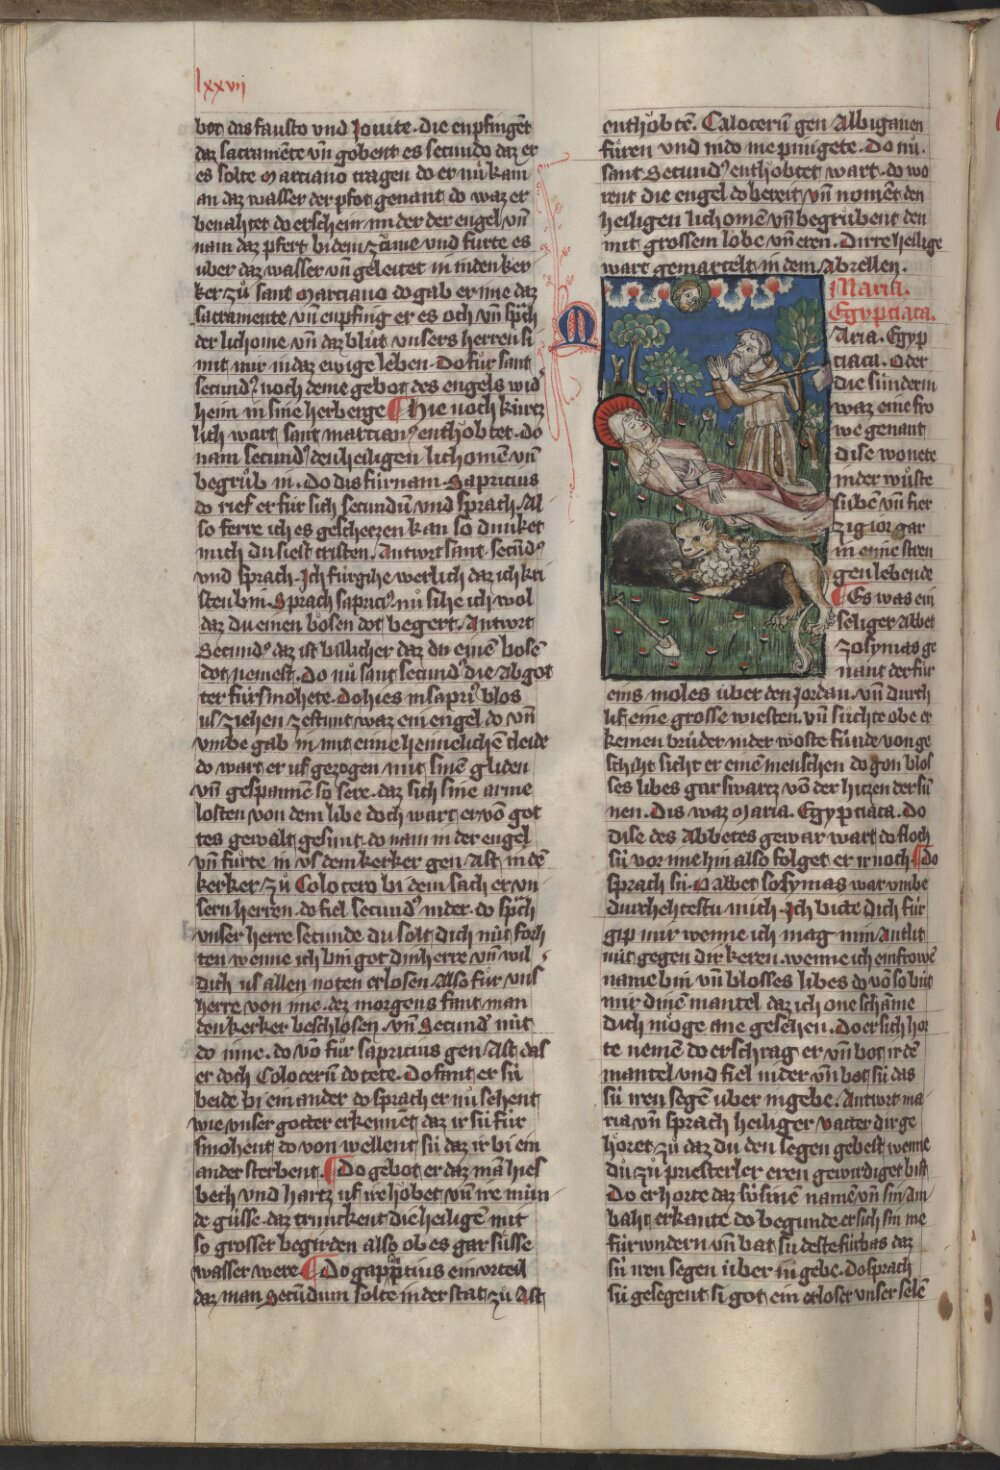 lxxvii
bot das fausto vnd Jouite. die enpfingēt
daz sacramēte vn̄ gobent es secundo daz er
es solte Marciano tragen do er nů kam
an daz wasser der pfot genant do waz er
benahtet do erschein im der der engel vn̄
nam daz pfert bi dem zāme vnd fůrte es
v́ber daz wasser vn̄ geleitet in in den ker
ker zů sant Marciano do gab er ime daz
sacramente vn̄ enpfing er es och vn̄ sprch
der lichome vn̄ daz blůt vnsers herren si
mit mir in daz ewige leben. Do fůr sant
secundꝰ noch deme gebot des engels wid
heim in sine herberge ¶ Hie noch kúrtz
lich wart sant marcianꝰ enthöbtet. do
nam secundꝰ den heiligen lichomē vn̄
begrůb in. Do dis fúrnam Sapricius
do rief er fúr sich secundū vnd sprach. Al
so ferre ich es geschetzen kan so dunket
mich du siest cristen. Antwrt sant secūdꝰ
vnd sprach. Ich fúrgihe werlich daz ich kri
sten bin. Sprach sapriciꝰ nů sihe ich wol
daz du einen bösen dot begert. Antwrt
Secundꝰ daz ist billicher daz du einē bosē
dot nemest. Do nů sant secundꝰ die abgöt
ter fúrsmohete. do hies in sapriꝰ blos
us ziehen zestunt waz ein engel do vn̄
vmbe gab in mit eime heimelichē cleide
do wart er uf gezogen mit sinē gliden
vn̄ gespannē so sere. daz sich sine arme
losten von dem libe doch wart er vō got
tes gewalt gesunt. do nam in der engel
vn̄ fůrte in vs dem kerker gen Ast in dē
kerker zů Colocero bi dem sach er vn
sern herren. do fiel secundꝰ nider. do sprch
vnser herre secunde du solt dich nút förh
ten wenne ich bin got din herre vn̄ wil
dich us allen noten erlosen. Also fůr vns
herre von ime. dez morgens fant man
den kerker beschlosen vn̄ Secundꝰ nút
do inne. do vō fůr sapricius gen Ast das
er doch Colocerū do tete. Do fant er sú
beide bi ein ander do sprach er nů sehent
wie vnser gotter erkennēt daz ir sú fúr
smohent do von wellent sú daz ir bi ein
ander sterbent. ¶ Do gebot er daz mā hies
bech vnd hartz uf ire höbet vn̄ ire mún
de gůsse. daz trunckent die heiligē mit
so grosser begirden also ob es gar sússe
wasser were. ¶ Do gap sapricius ein vrteil
daz man Secūdum solte in der stat zů Ast
enthöbtē. Calocerū gen Albiganen
fůren vnd in do me pinigete. Do nů.
sant Secundꝰ enthöbtet wart. do wo
rent die engel do bereit vn̄ nomēt den
heiligen lichomē vn̄ begrůbent den
mit grossem lobe vn̄ eren. Dirre heilige
wart gemartelt in dem Abrellen.
Maria.
Egypciaca.
Maria. Egyp
ciaca. Oder
die sünderin
waz eine fro
we genant
dise wonete
in der wůste
siben vn̄ fier
zig ior gar
in eime stren
gen lebende
¶ Es was ein
seliger Abbet
zosymas ge
nant der fůr
eins moles über den Jordan. vn̄ durch
lif eine grosse wiesten. vn̄ sůchte obe er
keinen brůder in der wöste fúnde von ge
schiht sicht er einē menschen do gon blos
ses libes gar swartz vō der hitzen der sū
nen. Dis waz Maria. Egypciaca. Do
dise des Abbetes gewar wart do floch
sú vor ime hin also folget er ir noch ¶ Do
sprach sú. O Abbet sosymas warvmbe
durchehtestu mich. Ich bitte dich fúr
gip mir wenne ich mag min antlit
nút gegen dir keren. wenne ich ein frowē
name bin vn̄ blosses libes do vō so bút
mir dinē mantel daz ich one schāme
dich möge ane gesehen. Do er sich hör
te nemē do erschrag er vn̄ bot ir dē
mantel vnd fiel nider vn̄ bat sú das
sú iren segē über in gebe. Antwrt ma
ria vn̄ sprach heiliger vatter dir ge
höret zů daz du den segen gebest wenne
dů zů priesterler eren gewirdiget bist
Do er horte daz sú sinē namē vn̄ sin am
baht erkante do begunde er sich sin me
fúrwndern vn̄ bat sú deste fúrbas daz
sú iren segen über in gebe. Do sprach
sú gelegent si got ein erloser vnser selē